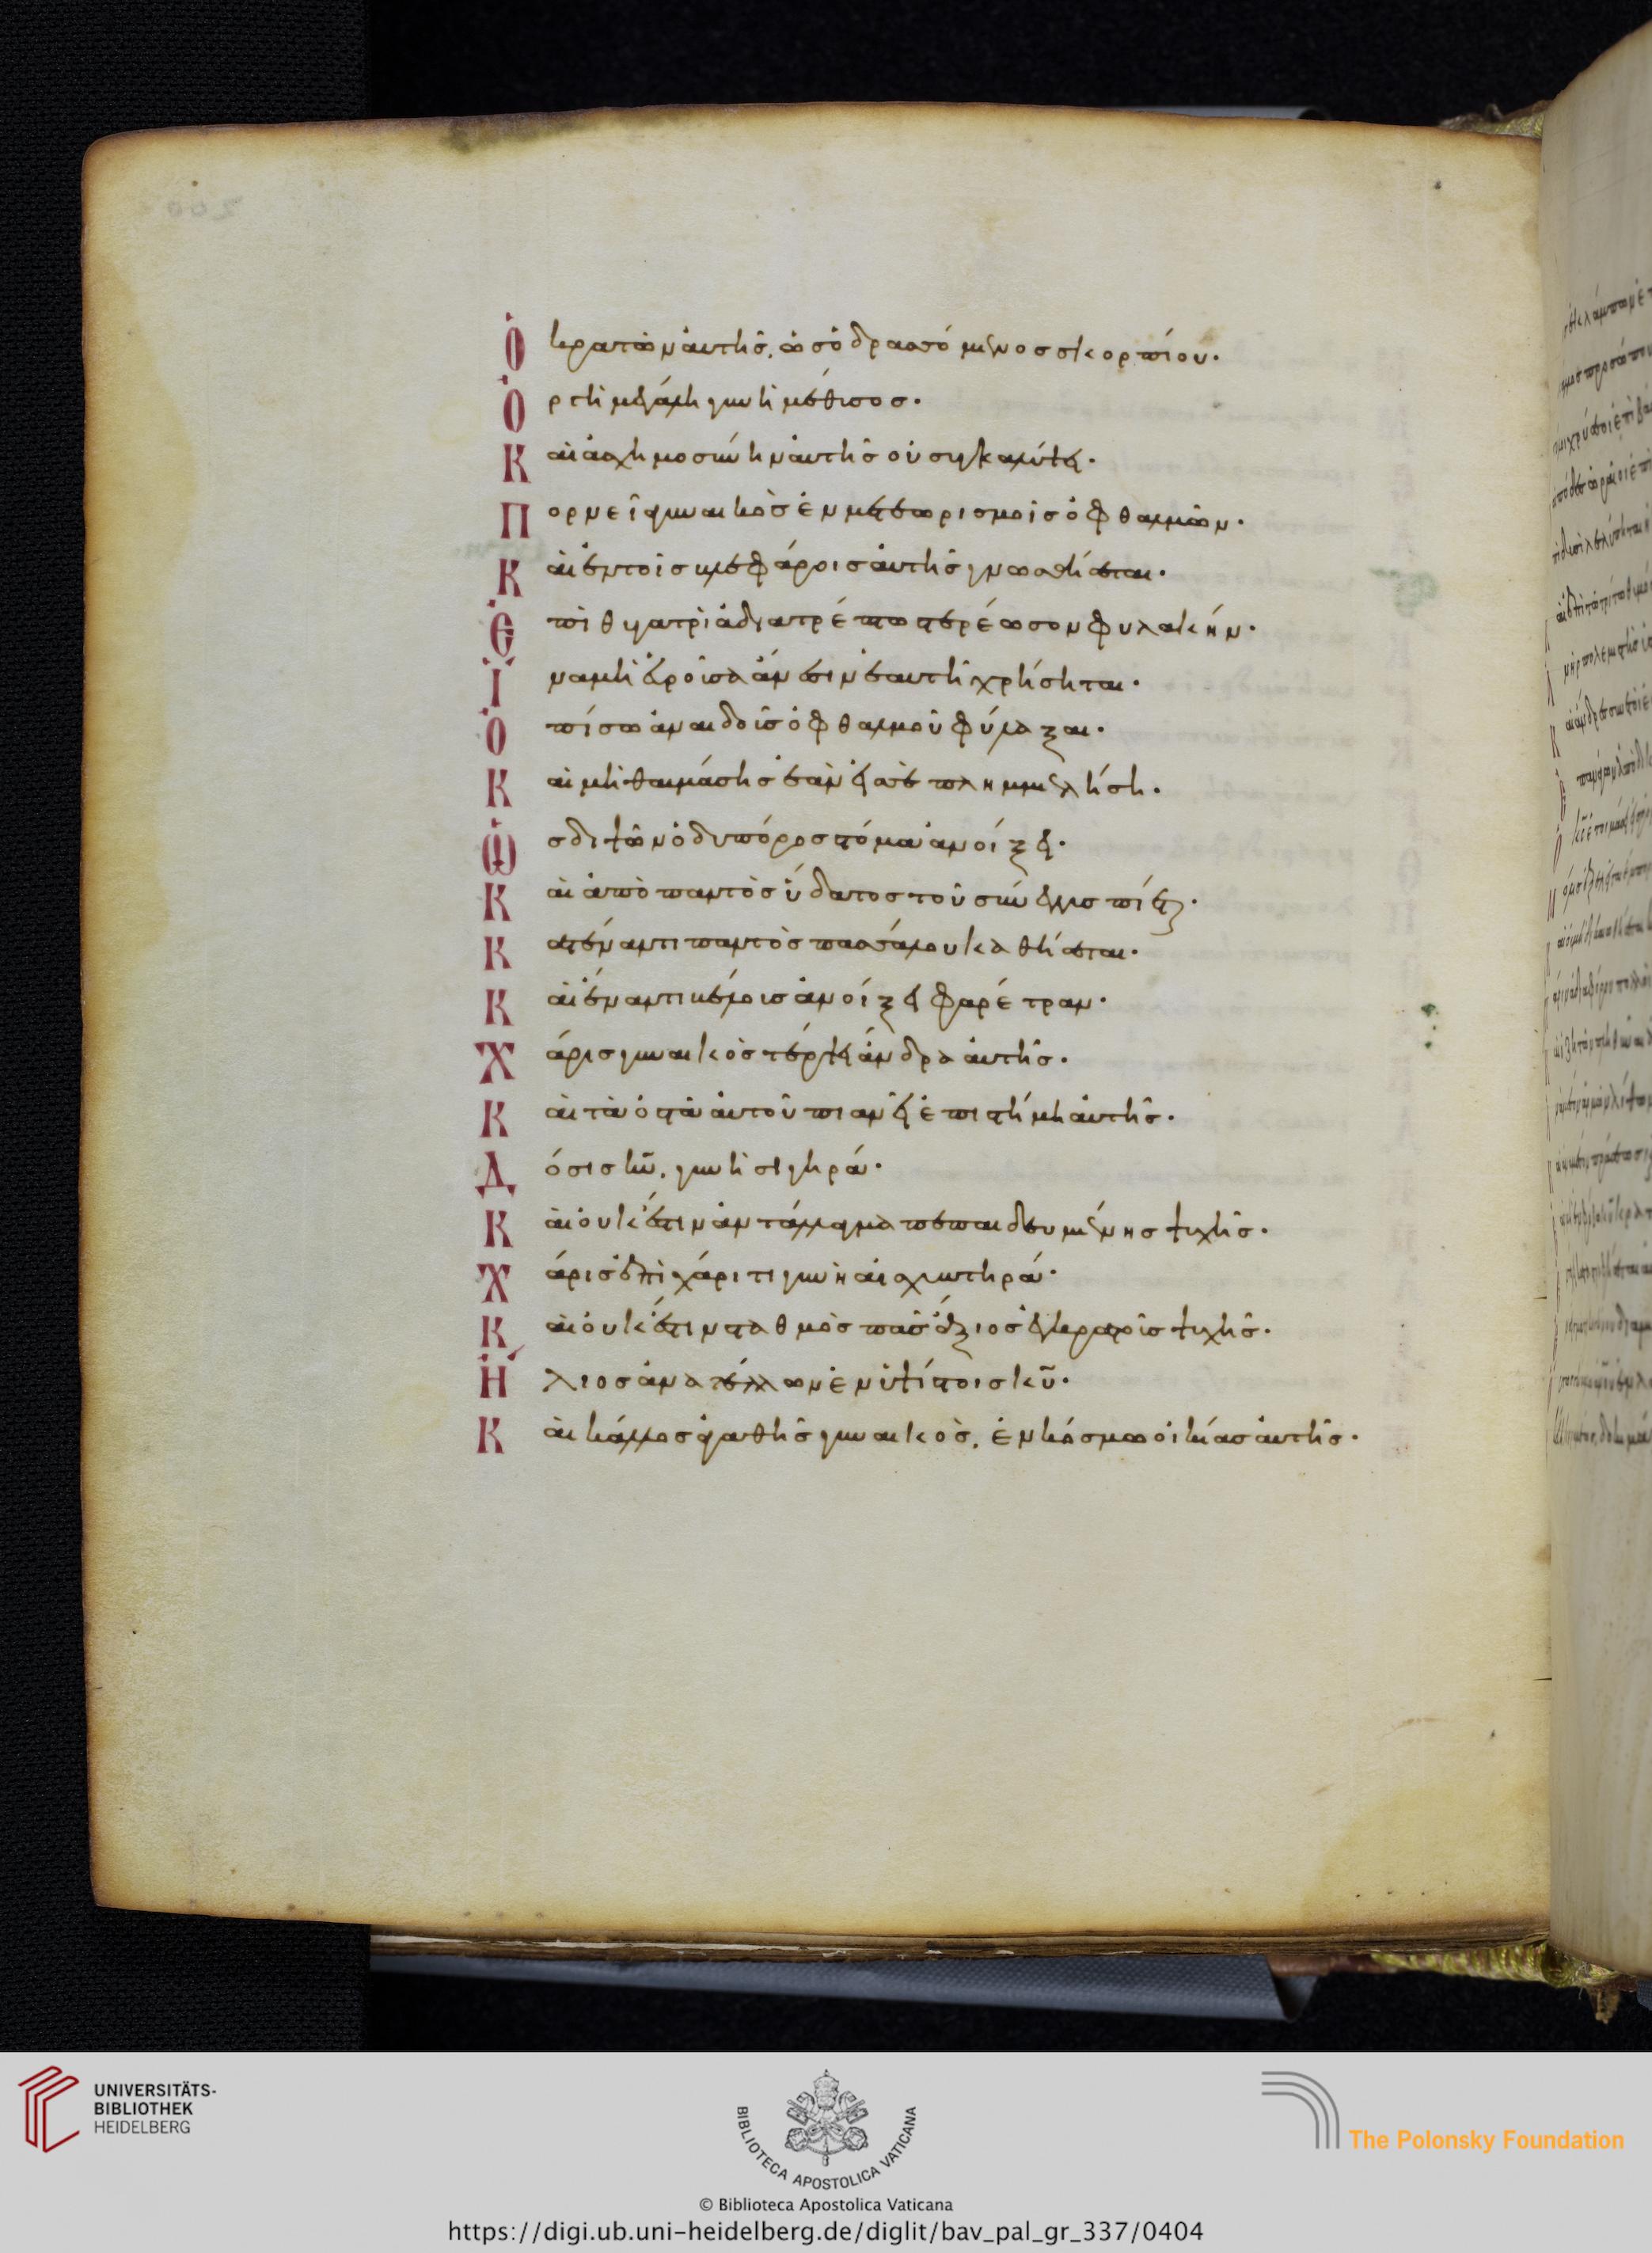 Ὁ κρατῶν αὐτῆς, ὡς ὁ δρασσόμενος σκορπίου·
Ὀργὴ μεγάλη γυνὴ μέθυσος·
Καὶ ἀσχημοσύνην αὐτῆς οὐ συγκαλύψει·
Πορνεία γυναικὸς ἐν μετεωρισμοῖς ὀφθαλμῶν·
Καὶ ἐν τοῖς βλεφάροις αὐτῆς γνωσθήσεται·
Ἐπὶ θυγατρὶ ἀδιατρέπτω στερέωσον φυλακήν·
Ἵνα μὴ εὑροῦσα ἄνεσιν ἑαυτῆ χρήσηται·
Ὀπίσω ἀναιδοῦς ὀφθαλμοῦ φύλαξαι·
Καὶ μὴ θαυμάσης ἐὰν εἰς σὲ πλημμελήση·
Ὡς διψῶν ὁδοιπόρος στόμα ἀνοίξει·
Καὶ ἀπὸ παντὸς ὕδατος τοῦ σύνεγγυς πίεται·
Κατέναντι παντὸς πασσάλου καθήσεται·
Καὶ ἔναντι βέλους ἀνοίξει φαρέτραν·
Χάρις γυναικὸς τέρψει ἄνδρα αὐτῆς·
Καὶ τὰ ὀστᾶ αὐτοῦ πιανεῖ ἐπιστήμη αὐτῆς·
Δόσις κυ, γυνὴ σιγηρά·
Καὶ οὐκ ἔστιν ἀντάλλαγμα πεπαιδευμένης ψυχῆς·
Χάρις ἐπὶ χάριτι γυνὴ αἰσχυντηρά·
Καὶ οὐκ ἔστιν σταθμὸς πᾶς ἄξιος ἐγκρατοῦς ψυχῆς·
Ἥλιος ἀνατέλλων ἐν ὑψίστοις κυ·
Καὶ κάλλος ἀγαθῆς γυναικὸς, ἐν κόσμω οἰκίας αὐτῆς·
UNIVERSITÄTS-
BIBLIOTHEK
HEIDELBERG
BIBLIOTECA APOSTOLICA VATICANA
The Polonsky Foundation
© Biblioteca Apostolica Vaticana
https://digi.ub.uni-heidelberg.de/diglit/bav_pal_gr_337/0404